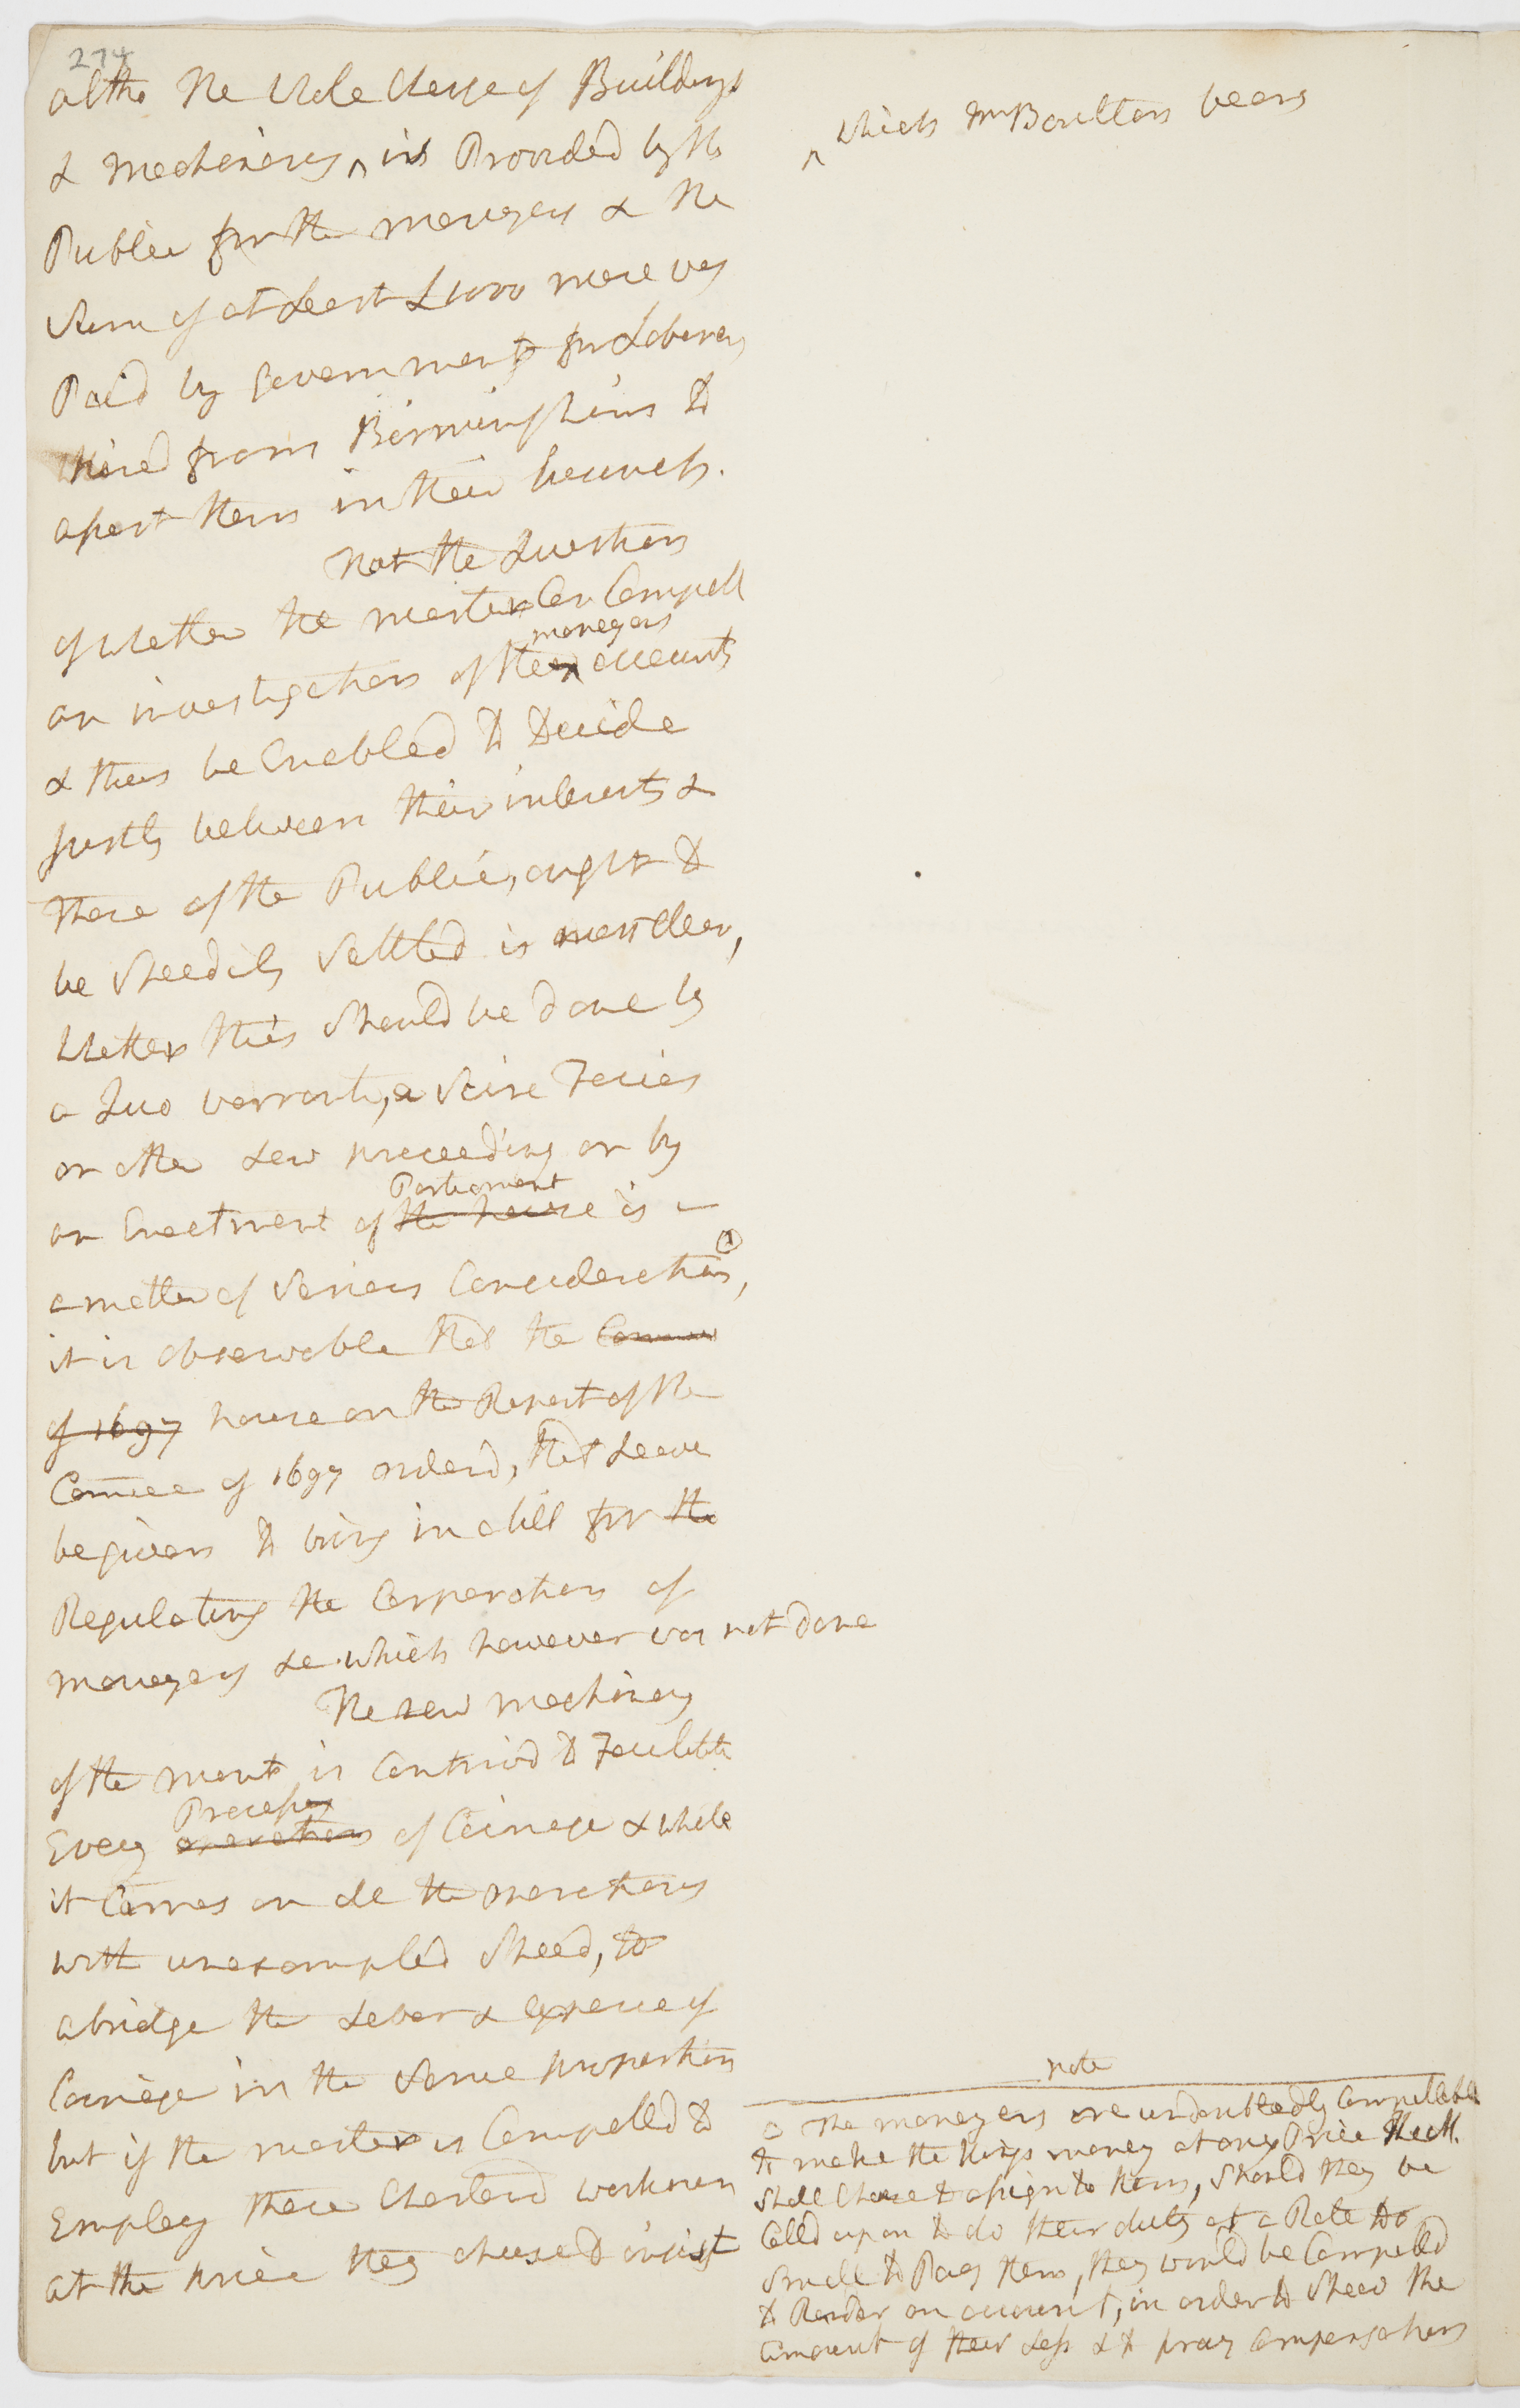 274
altho the whole charge of Buildings
& Mechinery ^ is Provided by the
Public for the moneyers & the
Sum of at Least £1000 more was
Paid by Government for Laborers
hired from Birmingham to
assist them in their branch.
that the Question
of whether the master Can Compell
an investigation of the ^ moneyers accounts
& thus be Enabled to Decide
justly between their interests &
those of the Public, ought to
be speedily settled is most clear,
whether this should be done by
a Quo warranto, a Scire Facias
or other Law proceeding or by
an Enactment of the house Parliament is
a matter of serious Consideration, ⓐ
it is observable that the Commee
of 1697 house on the Report of the
Commee of 1697 orderd, that Leave
be given to bring in a bill for the
Regulating the Corporation of
moneyers &c. which however was not done
The new mechinery
of the mint is Contrivd to Facilitate
Every operation Process of Coinage & while
it Carries on all the operations
with unexampled Speed, to
abridge the Labor & expence of
Coinage in the same proportion
but if the master is Compelld to
Employ these Charterd workmen
at the price they choose to insist
^ which Mr Boulton bears
note
a The moneyers are undoubtedly Compellable
to make the Kings money at any Price the M.
shall Chuse to assign to them, should they be
Calld upon to do their duty at a Rate too
small to Pay them, they would be Compelld
to Render an account, in order to shew the
amount of their Loss & to pray Compensation